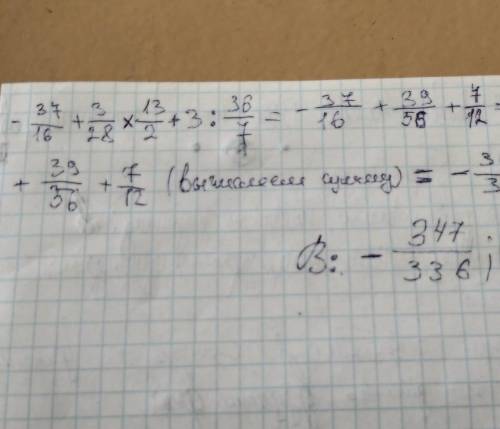 - 37/16 + 3/28 × 13/2 + 3 : 36/7 = - 37/16 + 39/56 + 7/12 =
+ 39/56 + 7/12 (вычисляем сумму) = - 3/3
В: - 347/336;